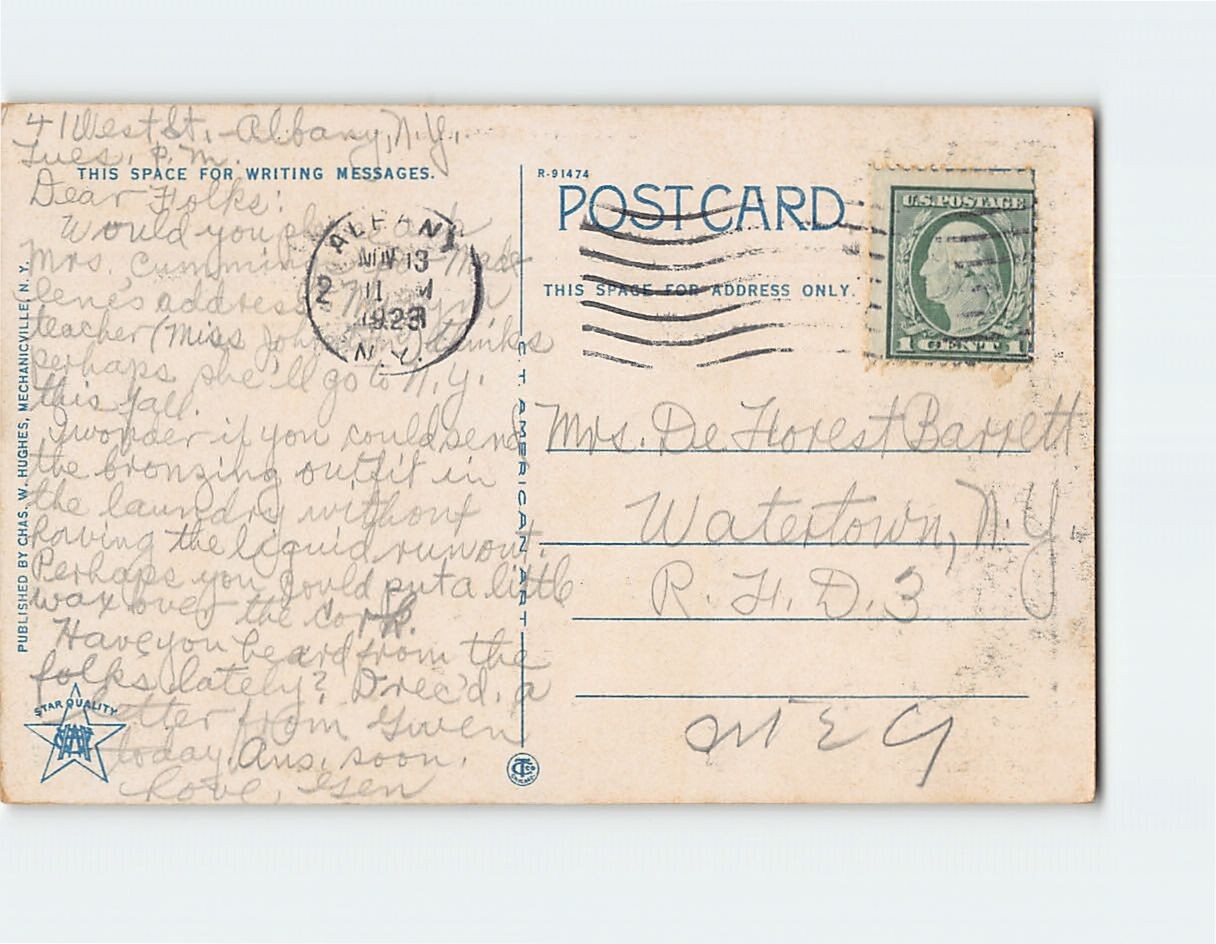 41 West St. - Albany, N.Y.,
Tues. P.M.
THIS SPACE FOR WRITING MESSAGES.
Dear Folks:
Would you
Mrs. Cummin
lene's address?
teacher (Miss thinks
perhaps she'll go to N.Y.
this fall.
I wonder if you could send
the bronzing outfit in
the laundry without
having the liquid run out.
Perhaps you could put a little
wax over the cork.
Have you heard from the
folks lately? I rec'd. a
letter from Gwen
today. Ans. soon.
Love, Gen
PUBLISHED BY CHAS. W. HUGHES, MECHANICVILLE, N. Y.
STAR QUALITY
ALBANY
NOV 13
2 11 M
1923
N.Y.
C. T. AMERICAN ART
R-91474
POST CARD
THIS SPACE FOR ADDRESS ONLY.
U.S. POSTAGE
1 CENT 1
Mrs. De Forest Barrett
Watertown, N.Y.
R. F. D. 3